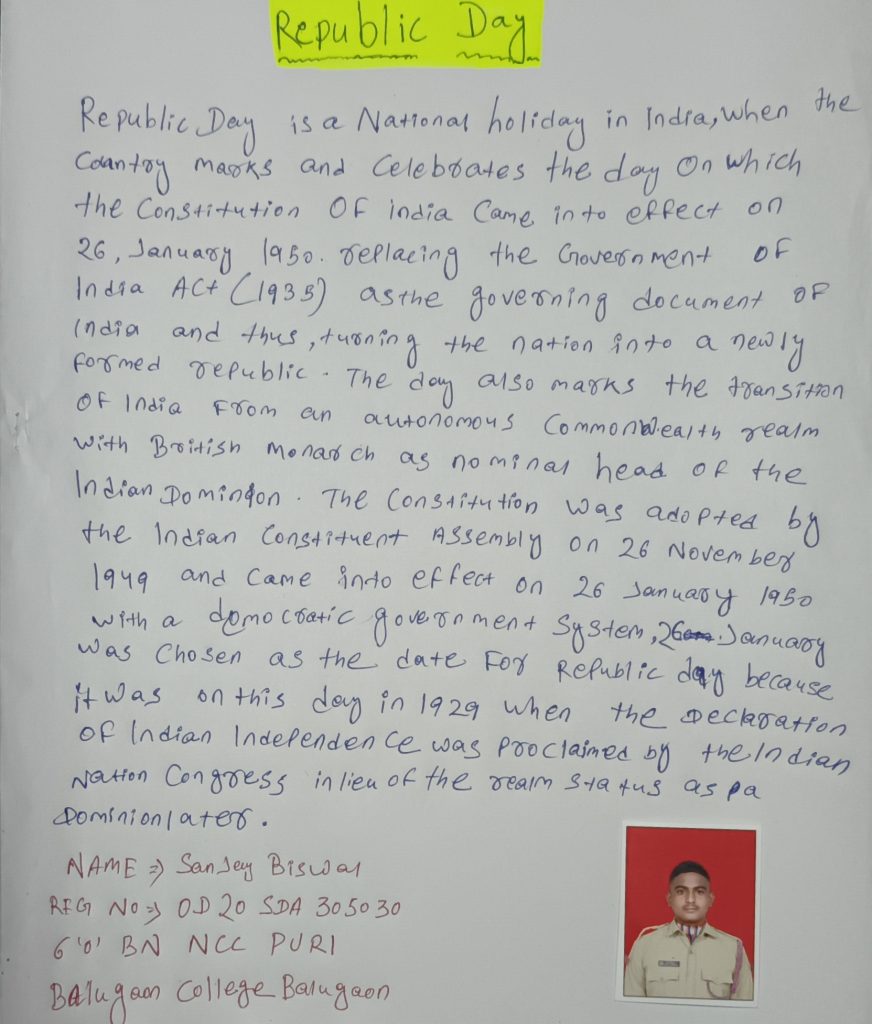 Republic Day
Republic Day is a National holiday in India, when the
Country marks and Celebrates the day on which
the Constitution OF india Came into effect on
26, January 1950. replacing the Government of
India Act (1935) as the governing document of
India and thus, turning the nation into a newly
formed republic. The day also marks the transition
of India From an autonomous Commonwealth realm
with British Monarch as nominal head of the
Indian Dominion. The Constitution was adopted by
the Indian Constituent Assembly on 26 November
1949 and Came into effect on 26 January 1950
with a democratic government System, 26 January
was Chosen as the date For Republic day because
it was on this day in 1929 when the Declaration
of Indian Independence was Proclaimed by the Indian
Nation Congress in lieu of the realm status as pa
Dominion later.
NAME => Sanjay Biswal
REG NO => OD 20 SDA 305030
6 'O' BN NCC PURI
Balugaon College Balugaon